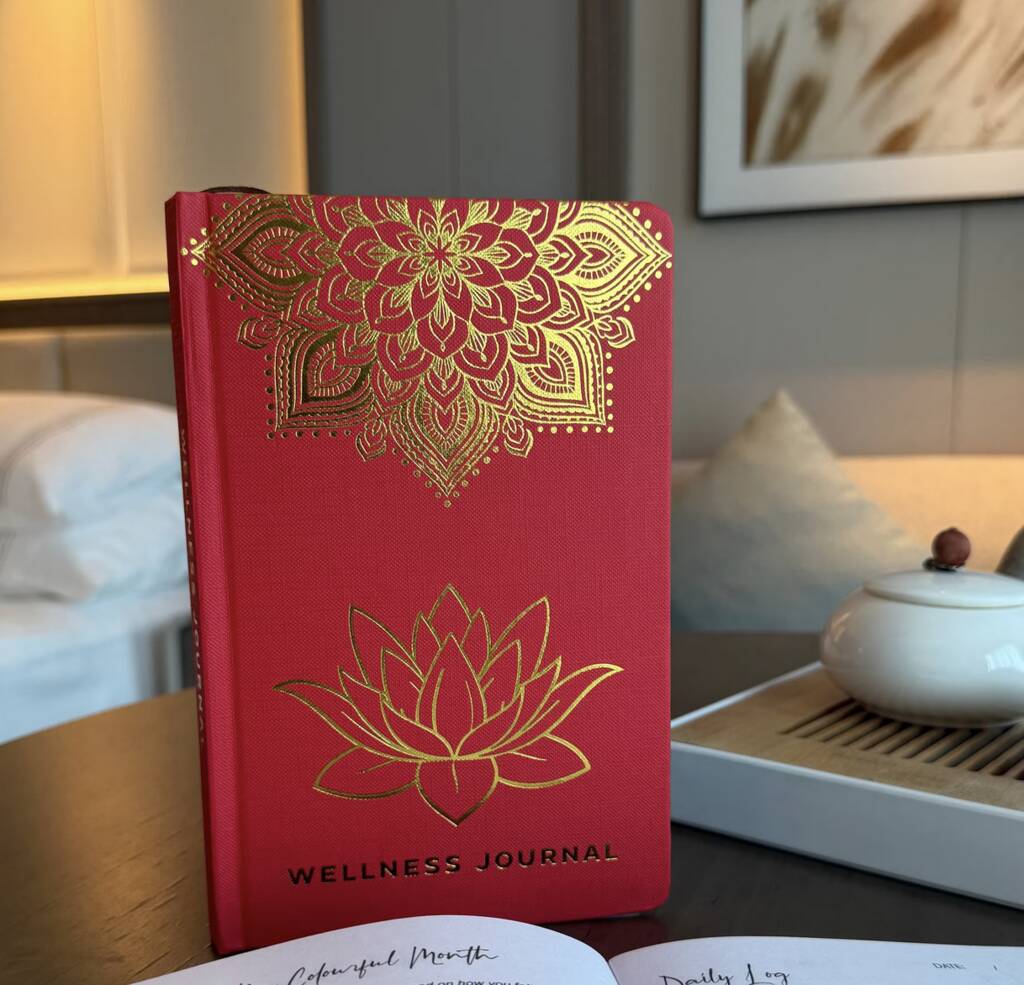 WELLNESS JOURNAL
WELLNESS JOURNAL
Colourful Month
on how you
Daily Log
DATE: